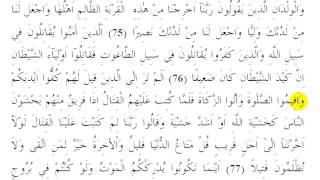 وَالْوِلْدَانِ الَّذِينَ يَقُولُونَ رَبَّنَا أَخْرِجْنَا مِنْ هَٰذِهِ الْقَرْيَةِ الظَّالِمِ أَهْلُهَا وَاجْعَلْ لَنَا
مِنْ لَدُنْكَ وَلِيًّا وَاجْعَلْ لَنَا مِنْ لَدُنْكَ نَصِيرًا (75) الَّذِينَ آمَنُوا يُقَاتِلُونَ فِي
سَبِيلِ اللَّهِ وَالَّذِينَ كَفَرُوا يُقَاتِلُونَ فِي سَبِيلِ الطَّاغُوتِ فَقَاتِلُوا أَوْلِيَاءَ الشَّيْطَانِ
إِنَّ كَيْدَ الشَّيْطَانِ كَانَ ضَعِيفًا (76) أَلَمْ تَرَ إِلَى الَّذِينَ قِيلَ لَهُمْ كُفُّوا أَيْدِيَكُمْ
وَأَقِيمُوا الصَّلَوةَ وَآتُوا الزَّكَاةَ فَلَمَّا كُتِبَ عَلَيْهِمُ الْقِتَالُ إِذَا فَرِيقٌ مِنْهُمْ يَخْشَوْنَ
النَّاسَ كَخَشْيَةِ اللَّهِ أَوْ أَشَدَّ خَشْيَةً وَقَالُوا رَبَّنَا لِمَ كَتَبْتَ عَلَيْنَا الْقِتَالَ لَوْلَا
أَخَّرْتَنَا إِلَى أَجَلٍ قَرِيبٍ قُلْ مَتَاعُ الدُّنْيَا قَلِيلٌ وَالْآخِرَةُ خَيْرٌ لِمَنِ اتَّقَى وَلَا
تُظْلَمُونَ فَتِيلًا (77) أَيْنَمَا تَكُونُوا يُدْرِكْكُمُ الْمَوْتُ وَلَوْ كُنْتُمْ فِي بُرُوجٍ